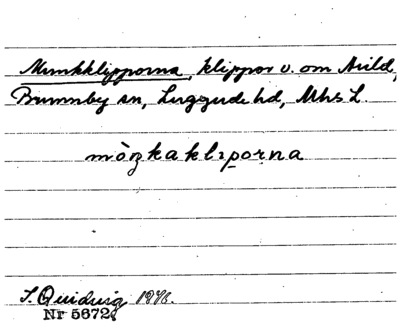 Munkklipporna, klippor v. om Arild,
Brunnby sn, Luggude hd, Mhs L.
mòŋkaklɩpo̢rna
Nr 5672